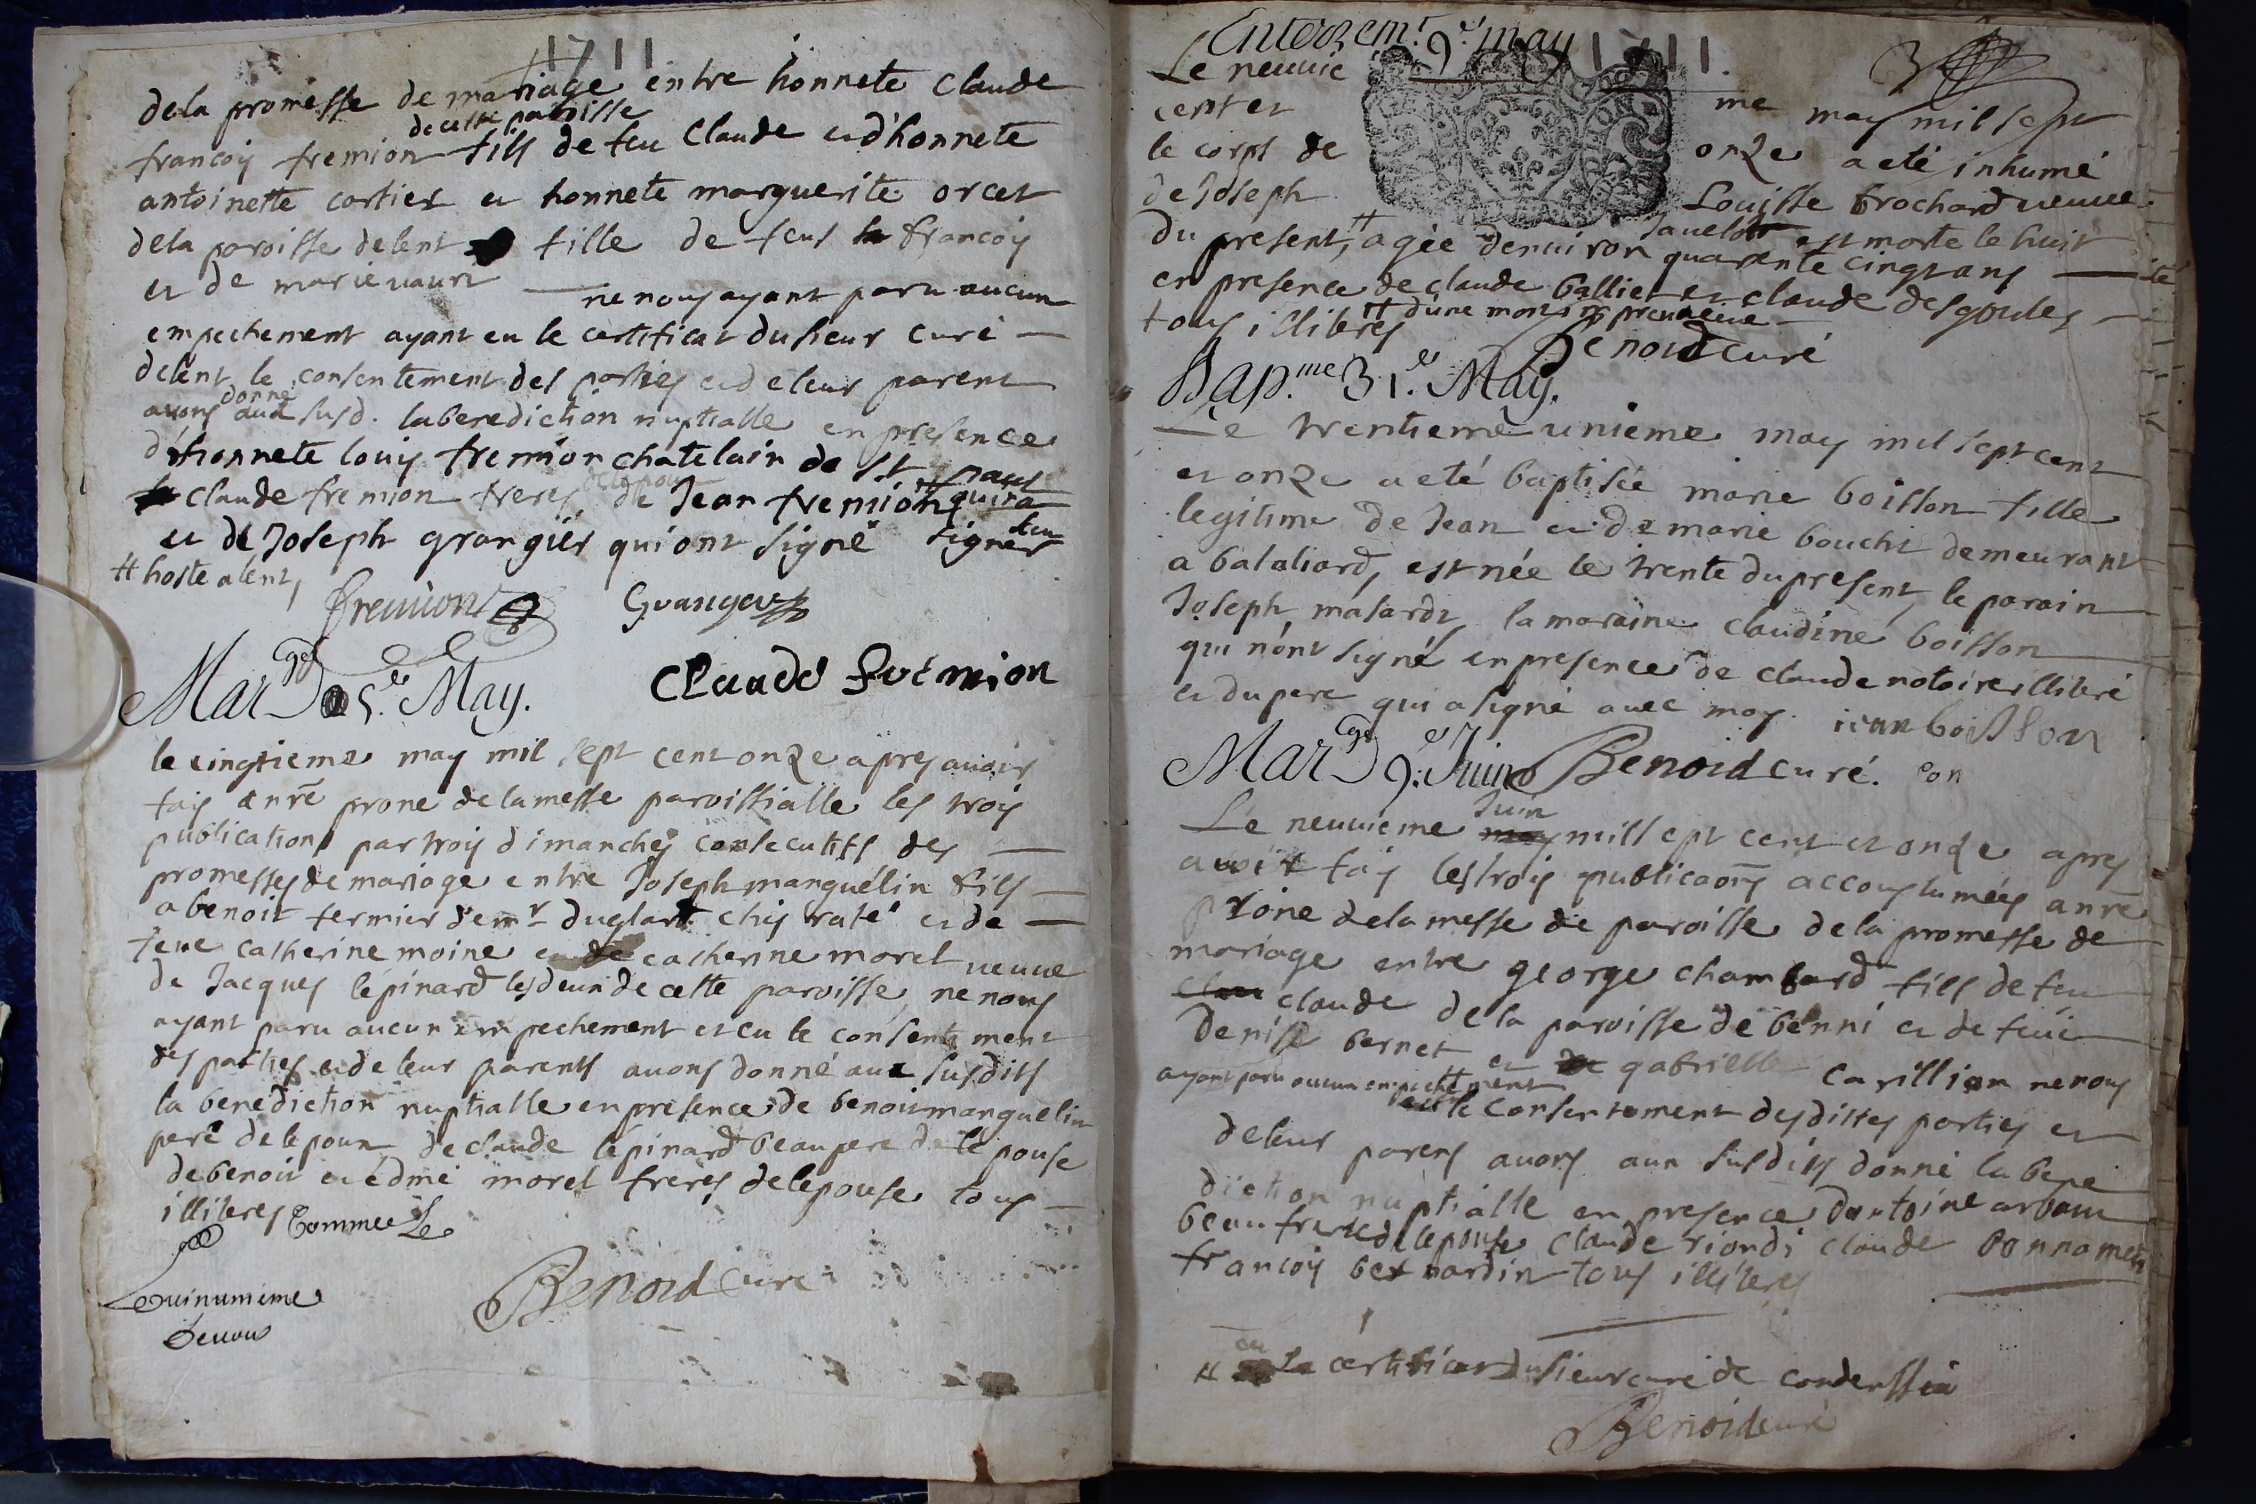 1711
dela promesse de mariage entre honnete Claude
de cette paroisse
francoy fremion fils de feu Claude et d'honnete
antoinette cortier et honnete marguerite orcet
dela paroisse delent fille de feus francoy
et de marie vaurt
ne nous ayant paru aucun
empechement ayant eu le certificat du sieur curé
delent le consentement des parties et de leur parent
donné
avons aux susd. la benediction nuptialle en presence
d'honnete louis fremion chatelain de st paul
claude fremion freres de Jean fremion qui n'a
sceu
et de Joseph grangier qui ont signé signer
# hoste a lent,
fremion Granger
Claude fremion
Marge 5.e May.
le cingtieme may mil sept cent onze apres avoir
fais au nre prone de la messe paroissialle les trois
publications par trois dimanches consecutifs des
promesses de mariage entre Joseph manguélin fils
a benoit fermier de mr duglart chis raté et de
feue catherine moine et de catherine morel veuve
de Jacques lépinard les deux de cette paroisse, ne nous
ayant paru aucun empechement et eu le consentement
des parties et de leur parents avons donné aux susdits
la benediction nuptialle en presence de benoit manguelin
pere de lepoux de claude lépinard beaupere de lépouse
de benoit et edmé morel freres de lepouse tous
illiteres
Commee
Benoid Curé
Enterrem.t 9.e may 1711.
Le neuvie me may mil sept
cent et onze a eté inhumé
le corps de Louisse brochard veuve
de Joseph Javelot est morte le huit
du present,# agée denviron quarente cinq ans
en presence de claude ballier et claude desgoules
tous illiteres # d'une mort
Benoid curé
Bap.me 31.e May.
Le trentieme unieme may mil sept cent
et onze a eté baptisée marie boisson fille
legitime de Jean et de marie bouchi demeurant
a bataliard, est née le trente du present, le parain
Joseph masardi la maraine claudine boisson
qui n'ont signé en presence de claude notoire illiteré
et du pere qui a signé avec moy. iean boisson
Marge 9.e Juin Benoid curé.
Juin
Le neuvieme may mil sept cent et onze apres
avoir fais les trois publicaons accoustumées a nre
prone de la messe de paroisse de la promesse de
mariage entre george chambard fils de feu
claude de la paroisse de benni et de feüe
Denise bernet et gabrielle carillion ne nous
ayant paru aucun empechement
#
le consentement des dittes parties et
de leur parens avons aux susdits donné la bene
diction nuptialle en presence dantoine arbam
beaufrere de lepouse claude riondi claude bonnamen
francois bernardin tous illiteres
# eu le certificat du sieur curé de condenssia
Benoid curé